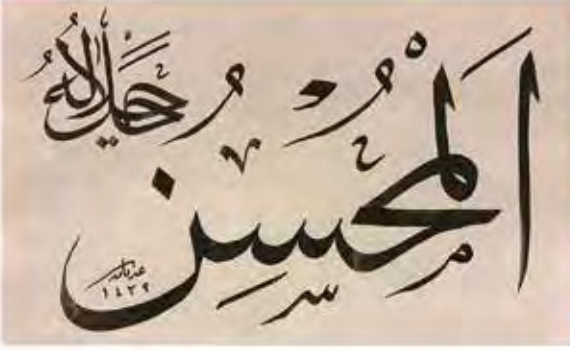 اَلْمُحْسِنُ جل جلاله
١٤٢٩